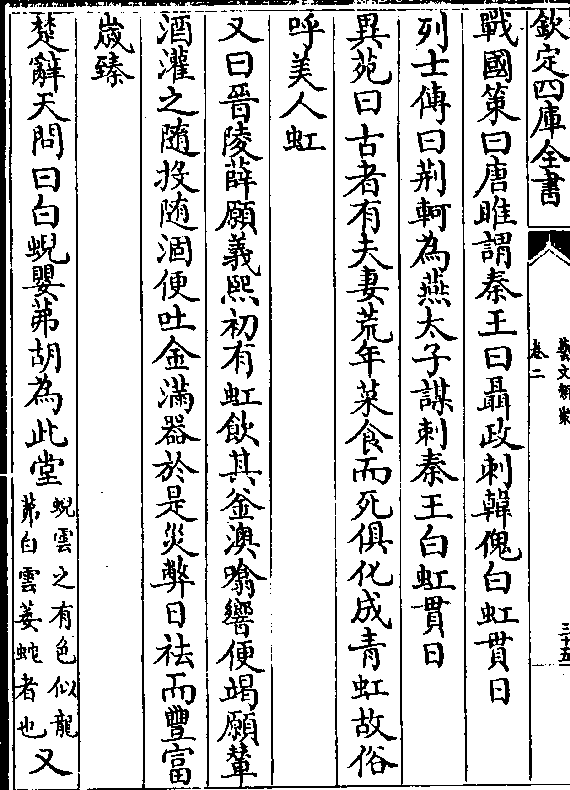 欽定四庫全書
藝文類聚
卷二
三十五
戰國策曰唐睢謂秦王曰聶政刺韓傀白虹貫日
列士傳曰荆軻為燕太子謀刺秦王白虹貫日
異苑曰古者有夫妻荒年菜食而死俱化成青虹故俗
呼美人虹
又曰晉陵薛願義熙初有虹飲其釡澳噏響便竭願輦
酒灌之隨投随涸便吐金滿器於是災弊日祛而豐富
嵗臻
楚辭天問曰白蜺嬰茀胡為此堂蜺雲之有色似龍茀白雲萎蛇者也又